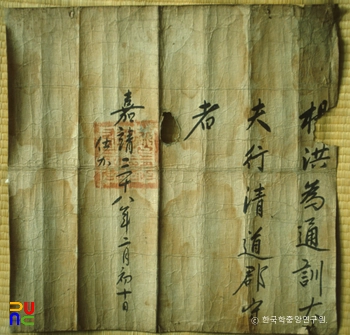 洪為通訓大
夫行清道郡守
者
嘉靖二十八年二月初十日
© 한국학중앙연구원